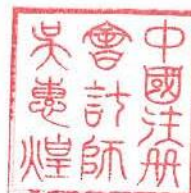 中國注册
會計師
吳惠煌